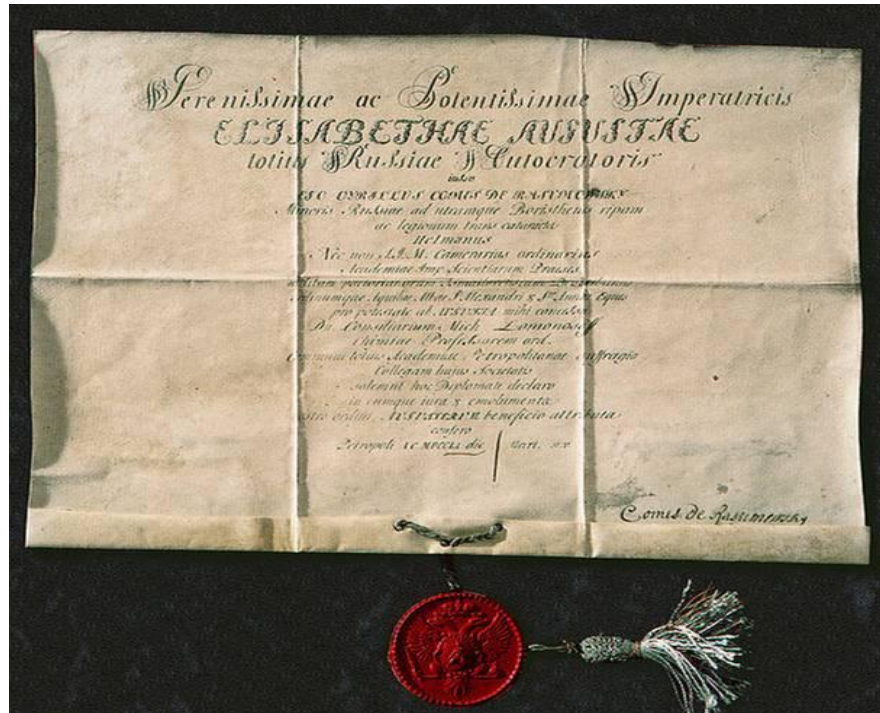 Serenissimae ac Potentissimae Imperatricis
ELISABETHAE AUGUSTAE
totius Russiae Autocratoris
iussu
EGO CYRILLUS COMES DE RASUMOWSKY
Minoris Russiae ad utramque Boristhenis ripam
ac legionum trans cataracta
Hetmanus
Nec non S.I.M. Camerarius ordinarius
Academiae Imp. Scientiarum Praeses
ordinumque Aquilae Albae S. Alexandri & Equus
pro potestate ab AUGUSTA mihi concessa
Dn. Consiliarium Mich. Lomonosoff
Chimiae Professorem ord.
Communi totius Academiae Petropolitanae suffragio
Collegam hujus Societatis
solemni hoc Diplomate declaro
in eumque iura & emolumenta
ordini AUGUSTARUM beneficio attributa
confero
Petropoli die
Comes de Rasumowsky